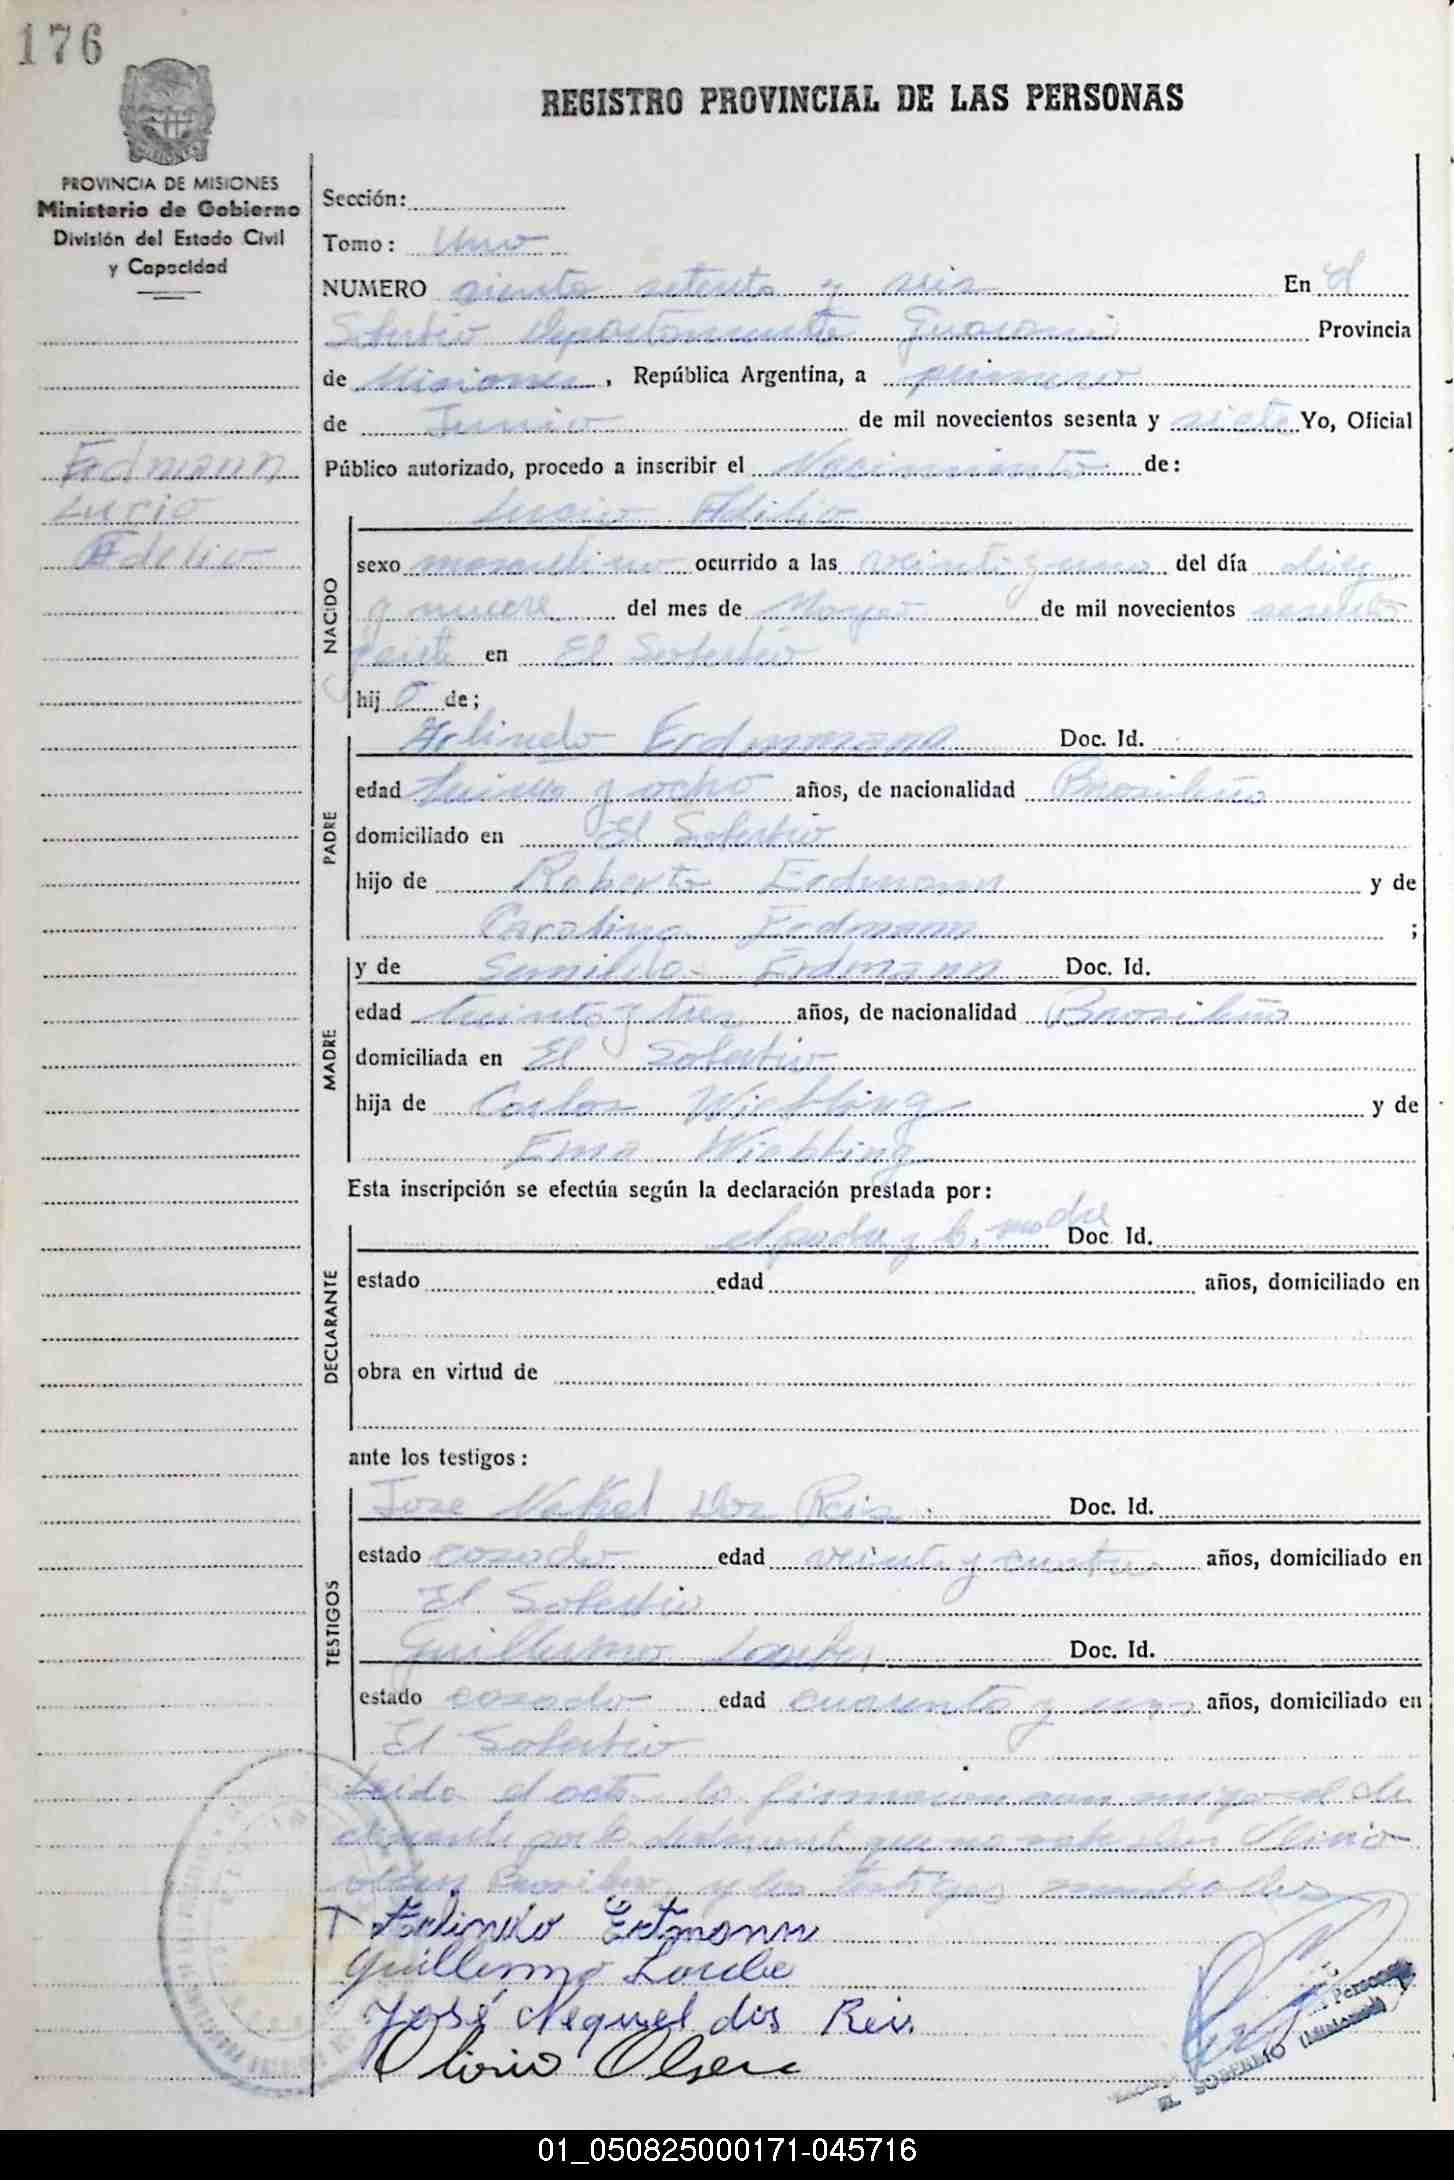 176
REGISTRO PROVINCIAL DE LAS PERSONAS
PROVINCIA DE MISIONES
Ministerio de Gobierno
División del Estado Civil
y Capacidad
Erdmann
Lucio
Adelio
Sección:
Tomo: Uno
NUMERO siento setenta y seis En el
Soberbio Departamento Guarani Provincia
de Misiones, República Argentina, a primero
de Junio de mil novecientos sesenta y siete Yo, Oficial
Público autorizado, procedo a inscribir el Nacimiento de:
Lucio Adilio
NACIDO
sexo masculino ocurrido a las veinti y uno del día diez
y nueve del mes de Mayo de mil novecientos sesenta
y siete en El Soberbio
hijo de;
PADRE
Arlindo Erdmmann Doc. Id.
edad treinta y ocho años, de nacionalidad Brasileño
domiciliado en El Soberbio
hijo de Roberto Erdmann y de
Carolina Erdmann ;
MADRE
y de Erdmann Doc. Id.
edad treinta y tres años, de nacionalidad Brasileña
domiciliada en El Soberbio
hija de Carlos Wiebbing y de
Ema Wiebbing
Esta inscripción se efectúa según la declaración prestada por:
DECLARANTE
el padre y la madre Doc. Id.
estado edad años, domiciliado en
obra en virtud de
ante los testigos:
TESTIGOS
Jose Dos Reis Doc. Id.
estado casado edad veinti y cuatro años, domiciliado en
El Soberbio
Guillermo Doc. Id.
estado casado edad cuarenta y uno años, domiciliado en
El Soberbio
Leida el acta la firmaron
y los testigos
Erlindo Ertmann
Guillermo Loribe
José Nequel dos Reis
Olirio Olsen
EL SOBERBIO (Misiones)
01_050825000171-045716